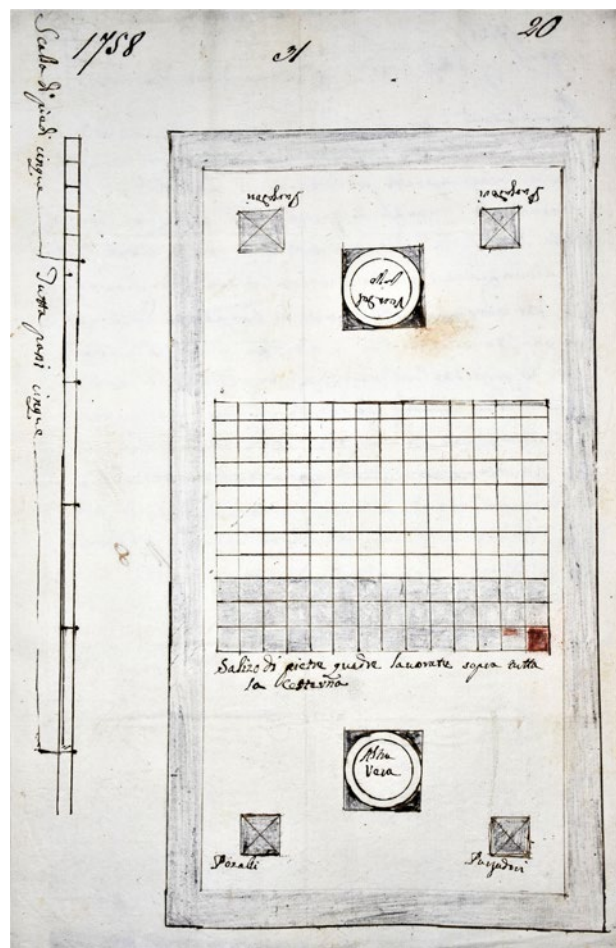 1758
31
20
Scalla di piedi cinque
Tutta passi cinque
Purgadori
Purgadori
Vera dal
pozzo
Salizo di pietre quadre lavorate sopra tutta
la Cesterna
Altra
Vera
Pozalli
Purgadori